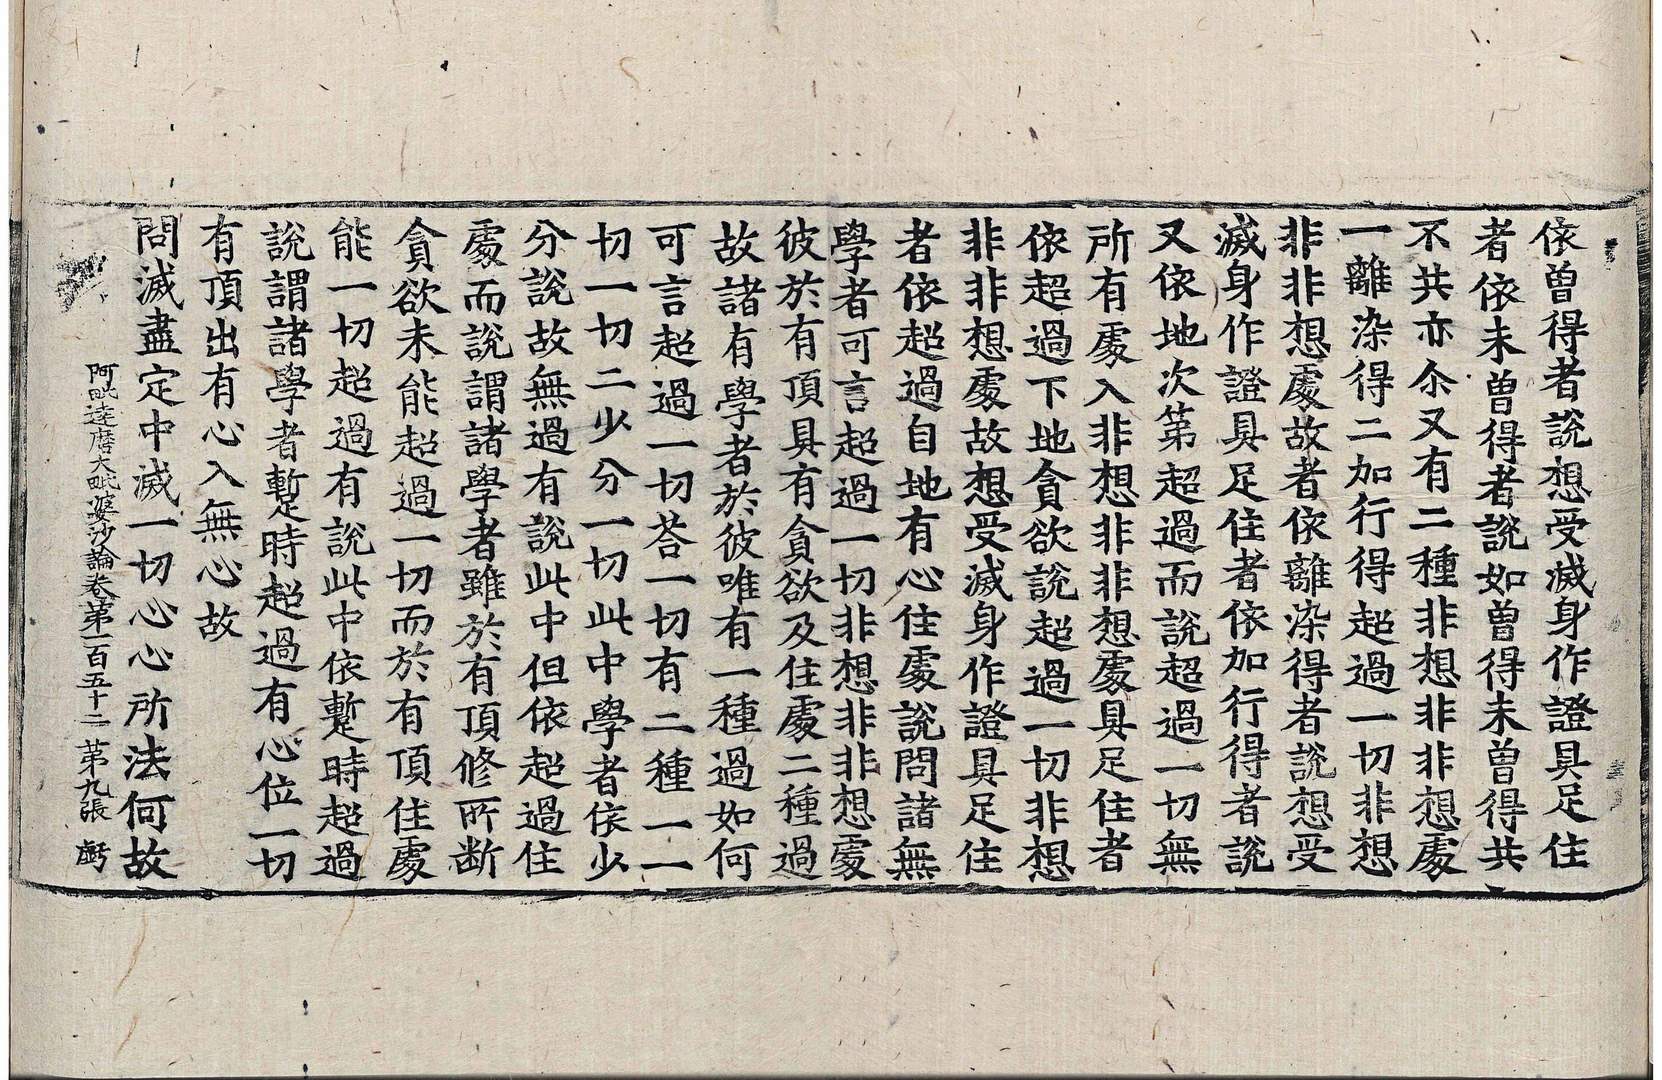 依曾得者說想受滅身作證具足住
者依未曾得者說如曾得未曾得共
不共亦尒又有二種非想非非想處
一離染得二加行得超過一切非想
非非想處故者依離染得者說想受
滅身作證具足住者依加行得者說
又依地次第超過而說超過一切無
所有處入非想非非想處具足住者
依超過下地貪欲說超過一切非想
非非想處故想受滅身作證具足住
者依超過自地有心住處說問諸無
學者可言超過一切非想非非想處
彼於有頂具有貪欲及住處二種過
故諸有學者於彼唯有一種過如何
可言超過一切荅一切有二種一一
切一切二少分一切此中學者依少
分說故無過有說此中但依超過住
處而說謂諸學者雖於有頂修所断
貪欲未能超過一切而於有頂住處
能一切超過有說此中依蹔時超過
說謂諸學者蹔時超過有心位一切
有頂出有心入無心故
問滅盡定中滅一切心心所法何故
阿毗達磨大毗婆沙論卷第一百五十二 第九張 虧